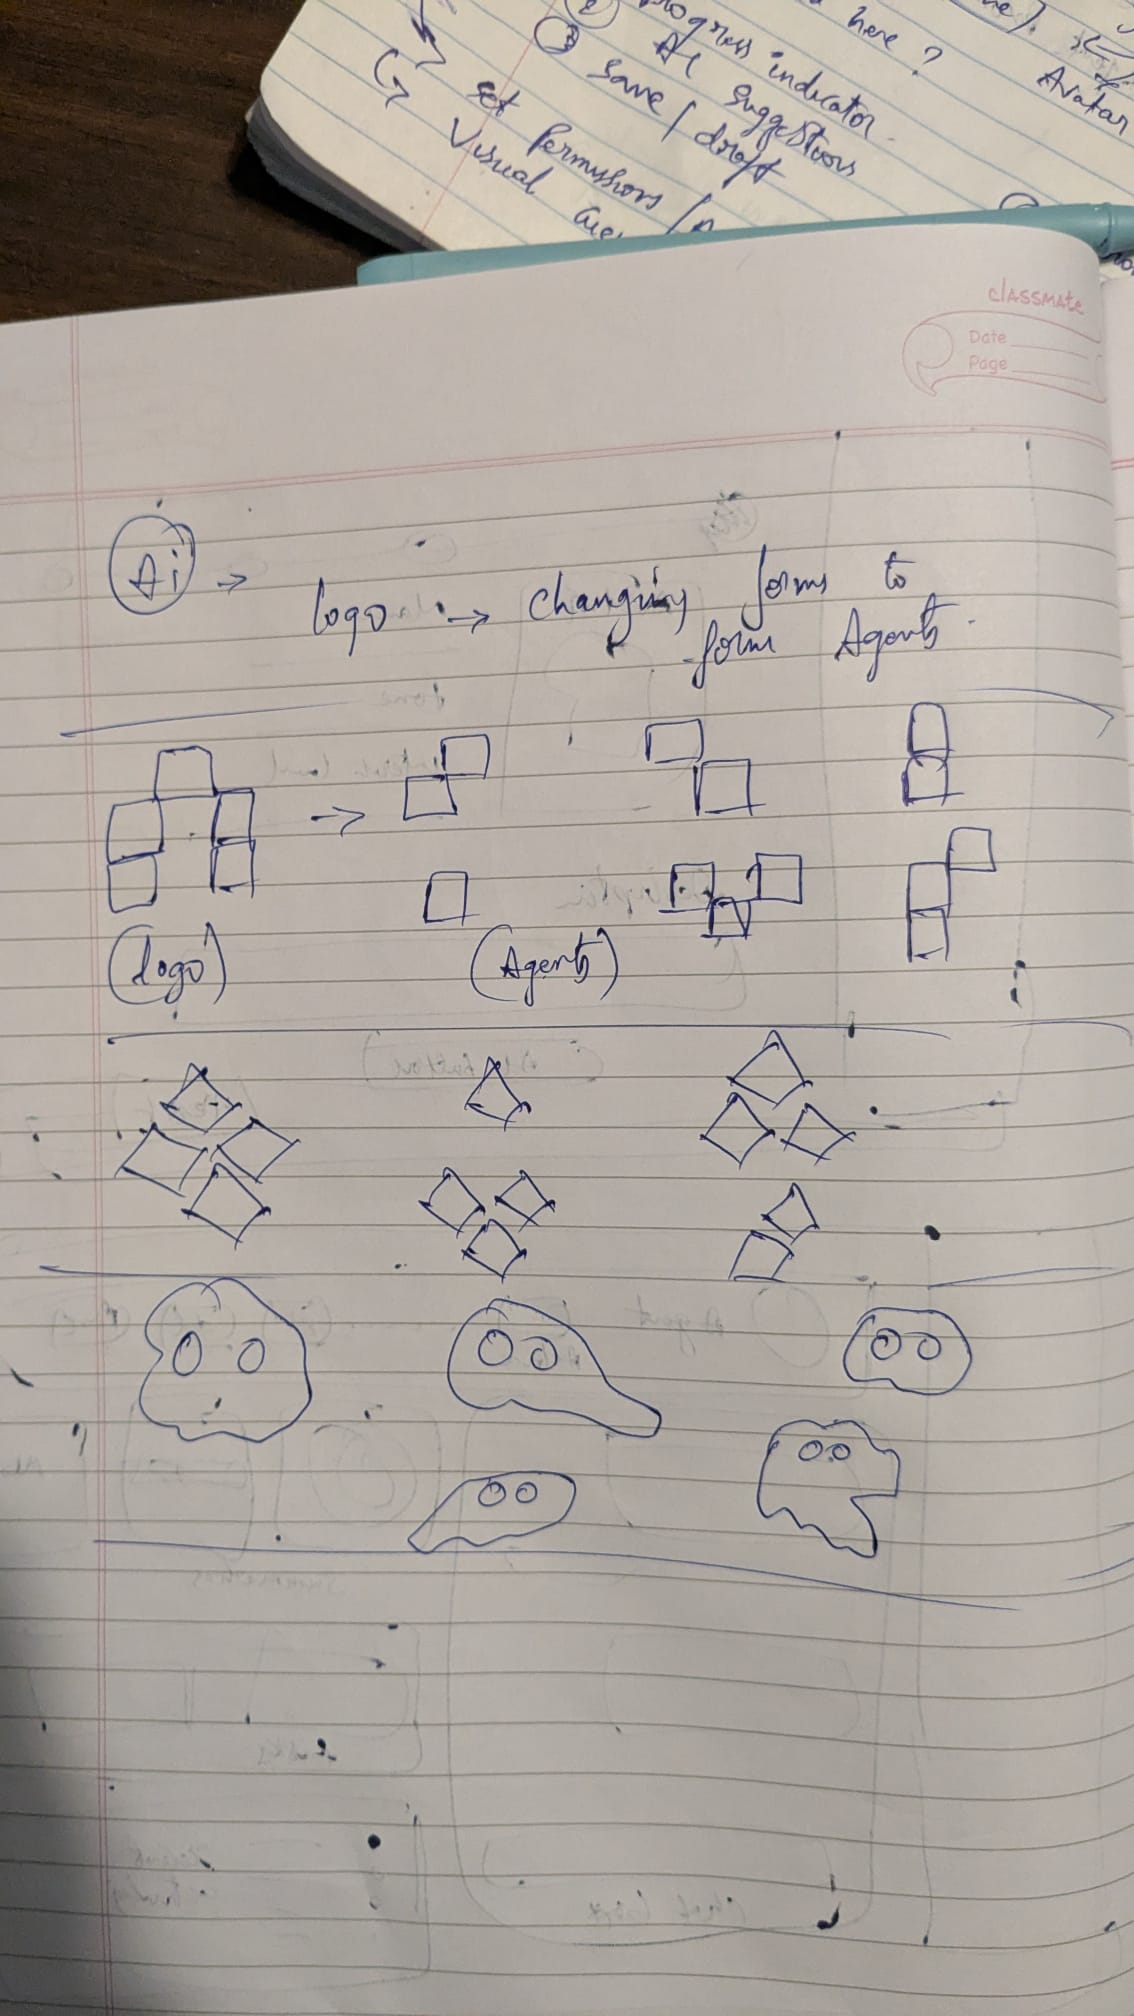 progress indicator
here ?
② AI suggestions
③ save / draft
Avatar
set Permissions /
Visual
classmate
Date
Page
Ai →
logo → changing forms to
form Agents
(logo)
(Agents)